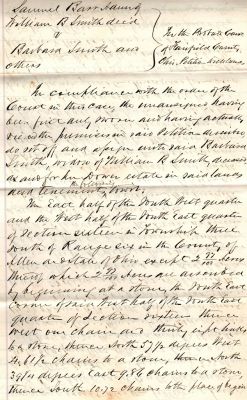 Samuel Barr Admr of
William R Smith decd
v
Barbara Smith and
others
In the Probate Court
of Fairfield County,
Ohio, Petition to sell land.
In compliance with the order of the
Court in this case, the undersigned having
been first duly sworn and having actually
viewed the premises in said Petition described
do set off and assign unto said Barbara
Smith, widow of William R Smith, deceased
as and for her Dower estate in said lands
and tenements, towit:
The East half of the South West quarter
and the West half of the South East quarter
of Section sixteen in Township three
South of Range six in the County of
Allen and State of Ohio except 2 Acres
thereof which 2 Acres are as described
by beginning at a stone, the South East
Corner of said West half of the South East
quarter of Section sixteen thence
West one chain and thirty eight links
to a stone, thence North 57 1/2 degrees West
4.61 1/2 chains to a stone, thence North
39 1/4 degrees East 9.86 chains to a stone
thence South 10.72 chains to the place of begin